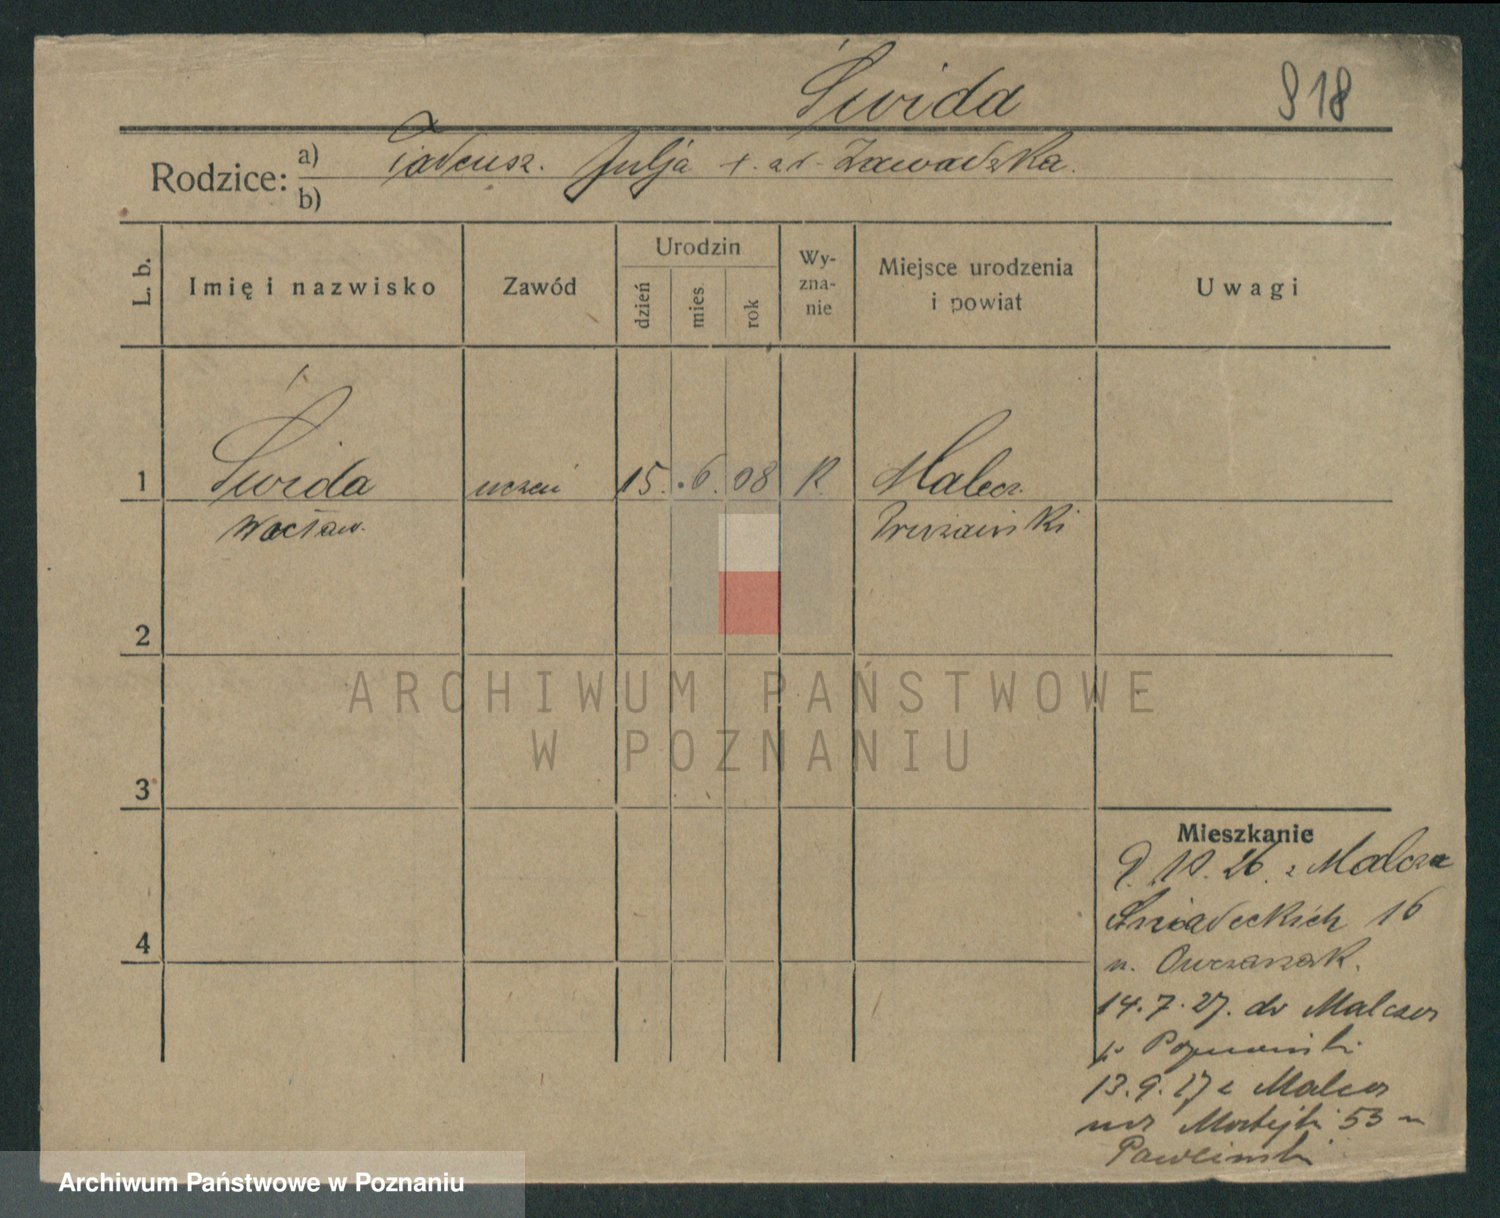 Świda 918
Rodzice: a) Tadeusz. Julja Zawadzka.
b)
L. b. Imię i nazwisko Zawód Urodzin dzień mies rok Wy-zna-nie Miejsce urodzenia i powiat Uwagi
1 Świda uczeń 15. 6. 08 R. Malcz.
Wacław.
2
3
4
Mieszkanie
9. 10. 26. z Malcza
Śniadeckich 16
u. Owczarzak.
14. 7. 27. do Malczew
p.
13. 9. 27 z
53
ARCHIWUM PAŃSTWOWE
W POZNANIU
Archiwum Państwowe w Poznaniu